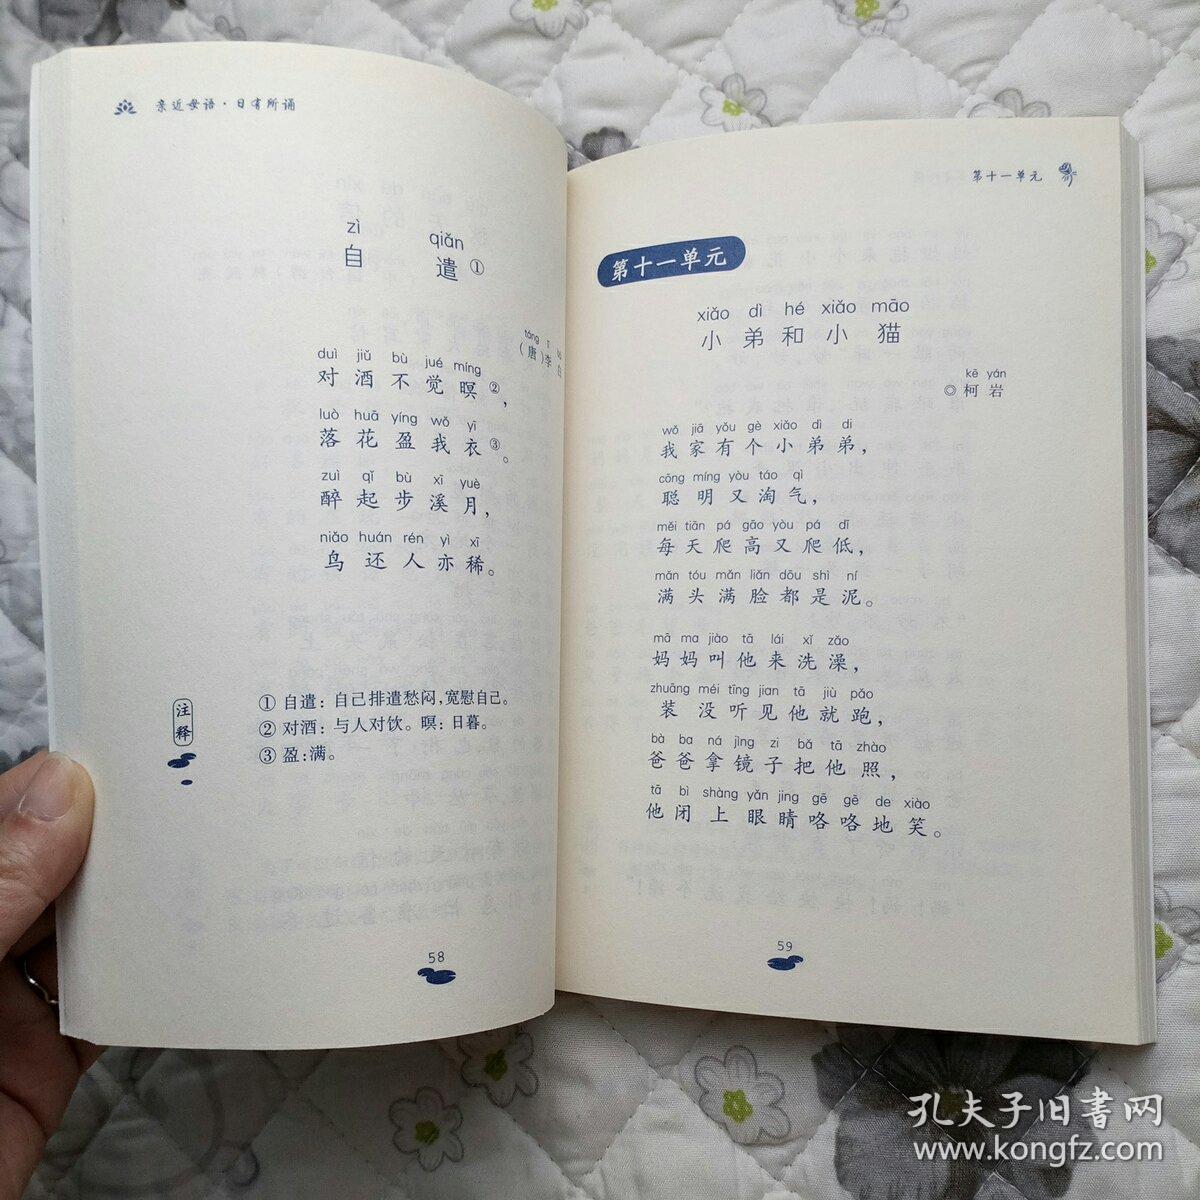 亲近母语·日有所诵
zì qiǎn
自 遣①
táng lǐ bó
(唐)李白
duì jiǔ bù jué míng
对酒不觉暝②,
luò huā yíng wǒ yī
落花盈我衣③。
zuì qǐ bù xī yuè
醉起步溪月,
niǎo huán rén yì xī
鸟还人亦稀。
注释
①自遣:自己排遣愁闷,宽慰自己。
②对酒:与人对饮。暝:日暮。
③盈:满。
58
第十一单元
第十一单元
xiǎo dì hé xiǎo māo
小弟和小猫
kē yán
◎柯岩
wǒ jiā yǒu gè xiǎo dì di
我家有个小弟弟,
cōng míng yòu táo qì
聪明又淘气,
měi tiān pá gāo yòu pá dī
每天爬高又爬低,
mǎn tóu mǎn liǎn dōu shì ní
满头满脸都是泥。
mā ma jiào tā lái xǐ zǎo
妈妈叫他来洗澡,
zhuāng méi tīng jian tā jiù pǎo
装没听见他就跑,
bà ba ná jìng zi bǎ tā zhào
爸爸拿镜子把他照,
tā bì shàng yǎn jing gē gē de xiào
他闭上眼睛咯咯地笑。
59
孔夫子旧书网
www.kongfz.com